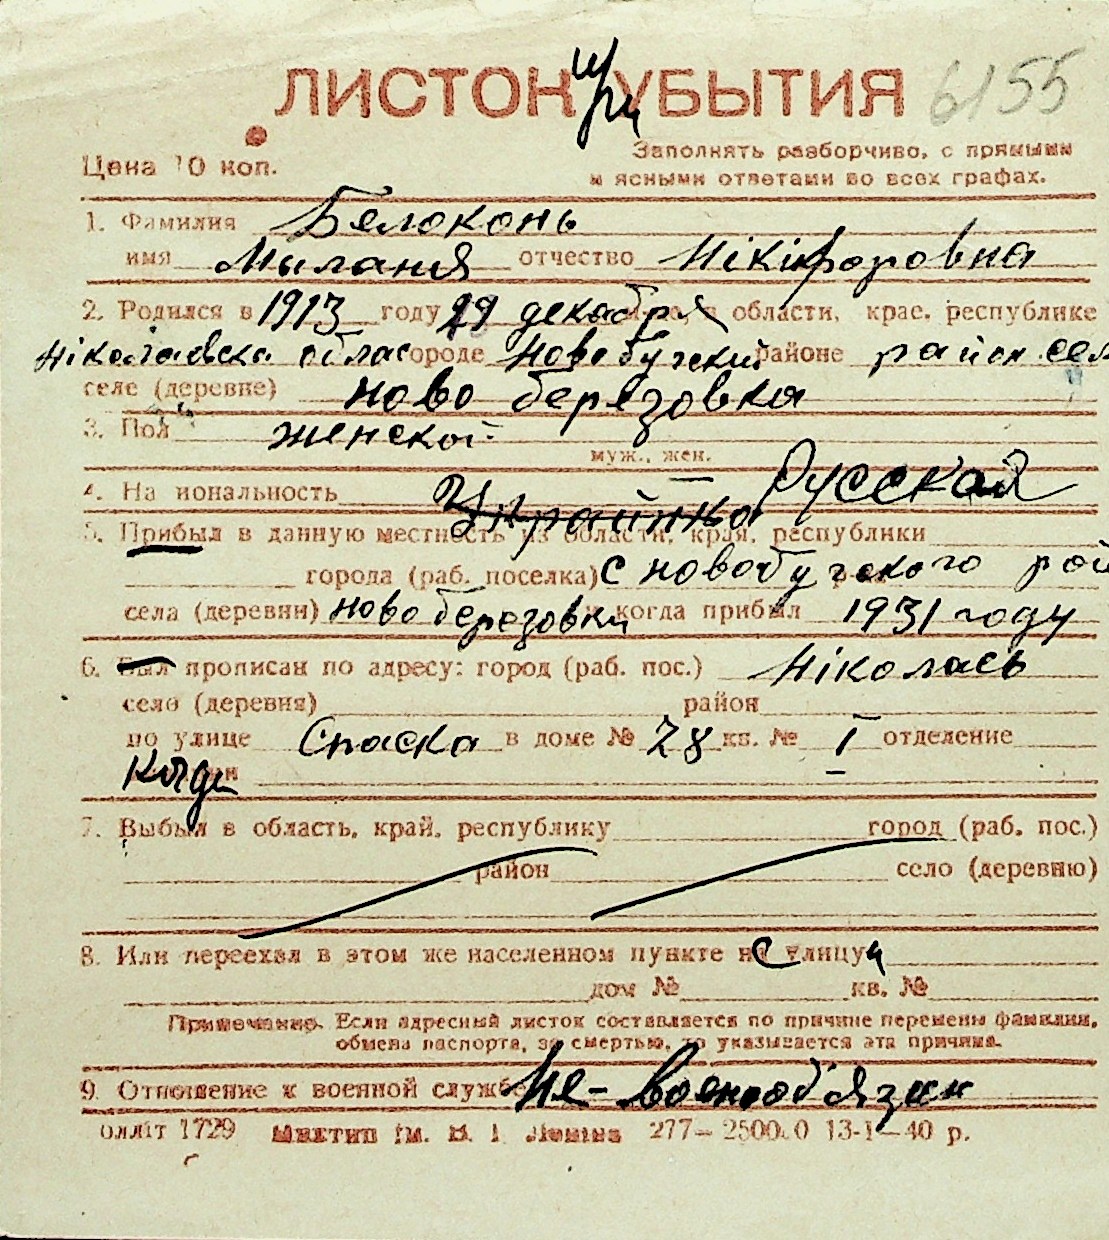 ЛИСТОК при УБЫТИЯ 6155
Цена 10 коп.
Заполнять разборчиво, с прямыми
и ясными ответами во всех графах.
1. Фамилия Белоконь
имя Мылания отчество Нікіфоровна
2. Родился в 1913 году 29 декабря области, крае, республике
Ніколаевска облас городе Новобугский районе район сел
селе (деревне) Ново березовка
3. Пол женской
муж., жен.
4. Национальность Украинка Русская
5. Прибыл в данную местность из области, края, республики
города (раб. поселка) с новобугского рай
села (деревни) Ново березовки когда прибыл 1931 году
6. Был прописан по адресу: город (раб. пос.) Ніколаев
село (деревня) район
по улице Спаска в доме № 28 кв. № 1 отделение
7. Выбыл в область, край, республику город (раб. пос.)
район село (деревню)
8. Или переехал в этом же населенном пункте на с улицу и
дом № кв. №
Примечание. Если адресный листок составляется по причине перемены фамилии,
обмена паспорта, за смертью, то указывается эта причина.
9. Отношение к военной службе Не-военнооб'язан
оллiт 1729 Миктип Iм. В. I. Ленiна 277— 250000 13-1—40 р.